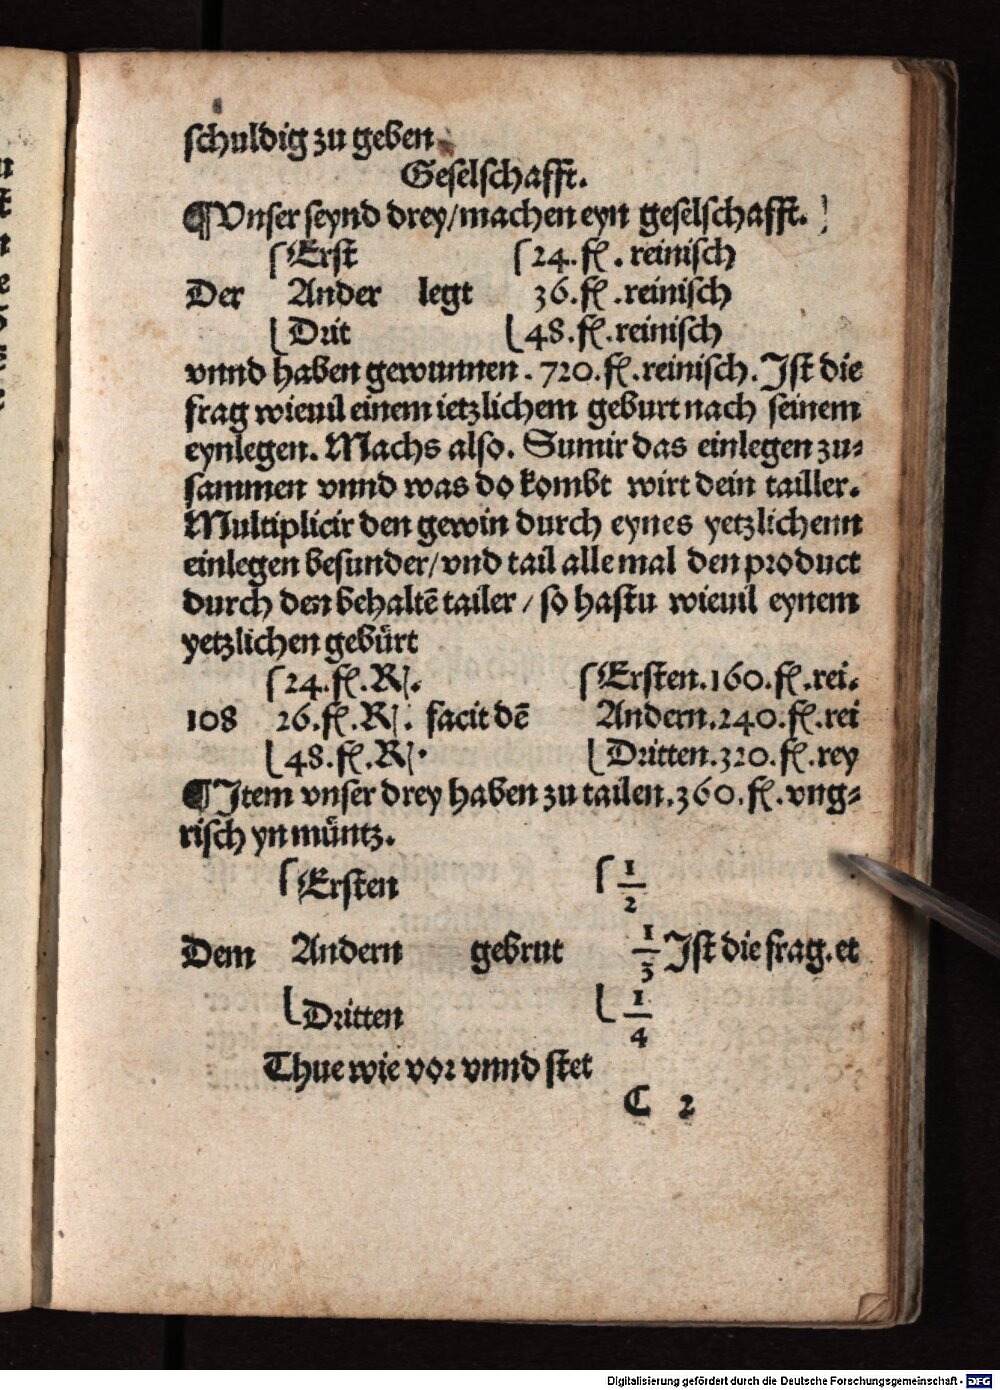 schuldig zu geben
Geselschafft.
¶Vnser seynd drey/machen eyn geselschafft.
Erst 24. fl. reinisch
Der Ander legt 36. fl .reinisch
Drit 48. fl.reinisch
vnnd haben gewunnen. 720. fl.reinisch. Ist die
frag wieuil einem ietzlichem geburt nach seinem
eynlegen. Machs also. Sumir das einlegen zu⸗
sammen vnnd was do kombt wirt dein tailler.
Multiplicir den gewin durch eynes yetzlichenn
einlegen besunder/vnd tail alle mal den product
durch den behaltē tailer / so hastu wieuil eynem
yetzlichen gebürt
24. fl. R. Ersten.160. fl.rei.
108 26. fl. R. facit dē Andern.240. fl.rei
48. fl. R. Dritten.320. fl.rey
¶Item vnser drey haben zu tailen.360. fl. vng⸗
risch yn müntz.
Ersten 1/2
Dem Andern gebrut 1/3 Ist die frag. et
Dritten 1/4
Thue wie vor vnnd stet
C 2
Digitalisierung gefördert durch die Deutsche Forschungsgemeinschaft - DFG